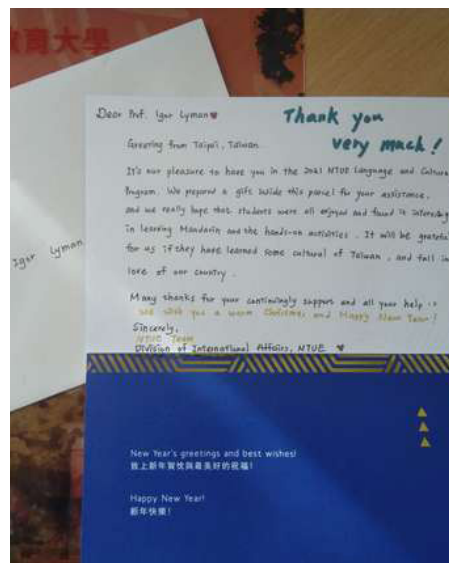 教育大學
Dear Prof. Igor Lyman
Thank you
very much!
Greeting from Taipei, Taiwan.
It's our pleasure to have you in the 2021 NTUE Language and Cultura
Program. We prepared a gift inside this parcel for your assistance,
and we really hope that students were all enjoyed and found it interesting
in learning Mandarin and the hands-on activities. It will be grateful
for us if they have learned some cultural of Taiwan, and fall in
love of our country.
Many thanks for your continuingly support and all your help :)
We wish you a warm Christmas and Happy New Year!
Sincerely,
NTUE Team
Division of International Affairs, NTUE
Igor Lyman
New Year's greetings and best wishes!
致上新年賀忱與最美好的祝福!
Happy New Year!
新年快樂!